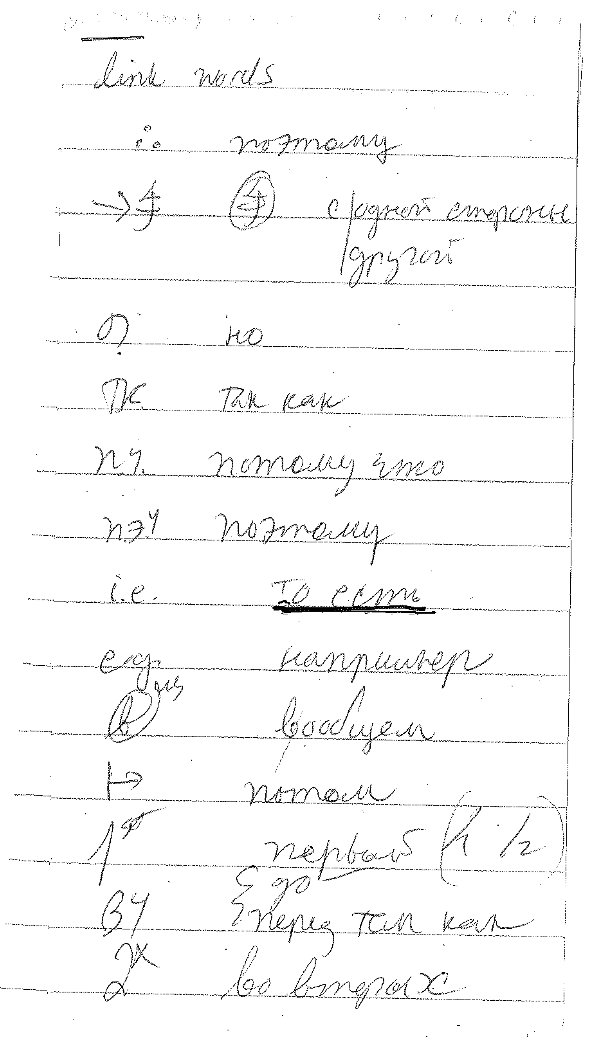 link words
∴ поэтому
с/одной стороны
/другой
но
тк. так как
п.ч. потому что
пэч поэтому
i.e. то есть
e.g. например
в вообщем
↦ потом
1ый первый (
до
B4 перед там как
2x во вторых